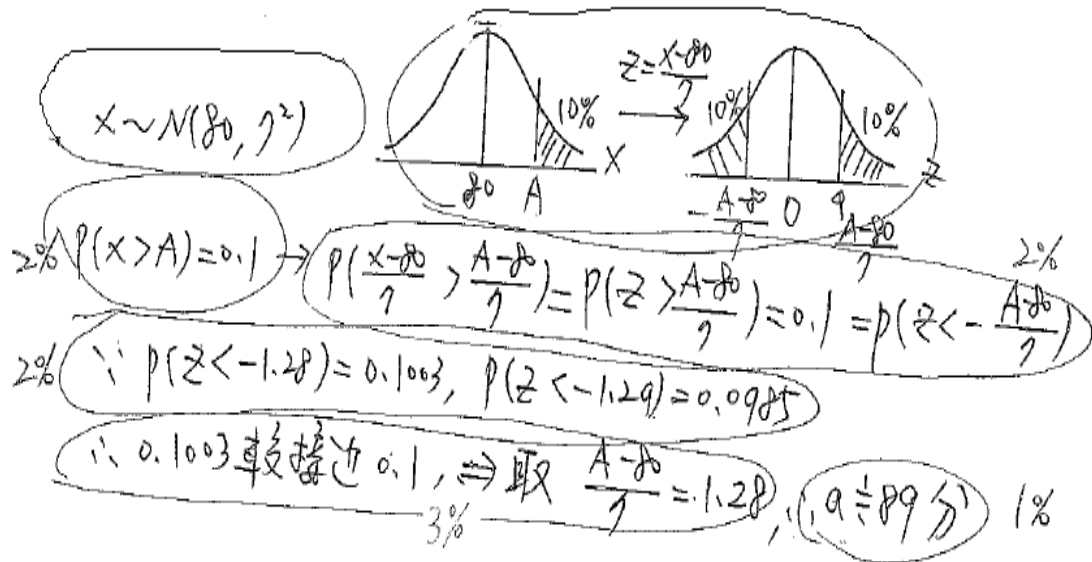 X~N(80, 7²)
10%
X
80 A
Z=\frac{X-80}{7}
→
10% 10%
Z
-\frac{A-80}{7} 0 \frac{A-80}{7}
2% P(X>A)=0.1 → P(\frac{X-80}{7} > \frac{A-80}{7})=P(Z>\frac{A-80}{7})=0.1=P(Z<-\frac{A-80}{7}) 2%
2% ∵ P(Z<-1.28)=0.1003, P(Z<-1.29)=0.0985
∴ 0.1003 較接近 0.1, ⇒ 取 \frac{A-80}{7}=1.28, ∴ a≑89分 1%
3%